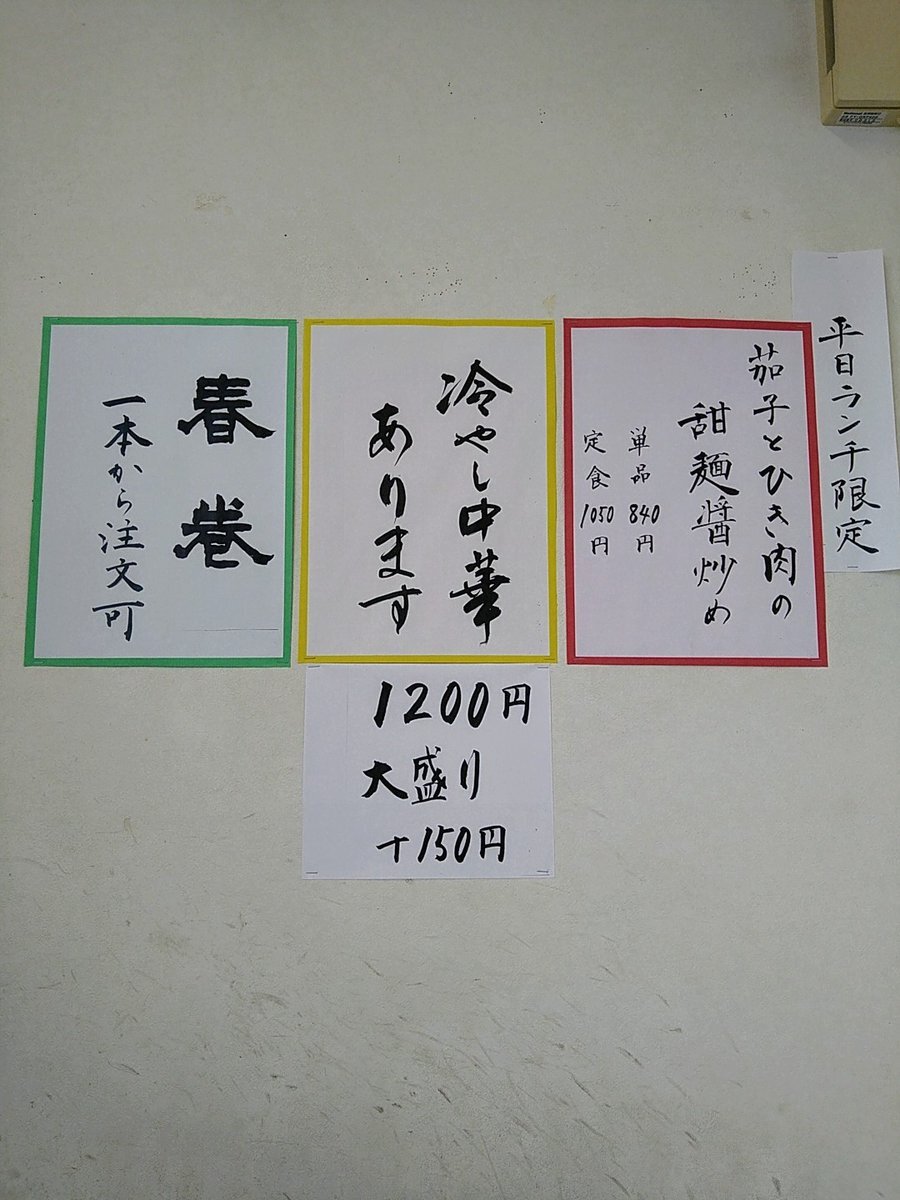 平日ランチ限定
茄子とひき肉の
甜麺醤炒め
単品840円
定食1050円
冷やし中華
あります
1200円
大盛り
+150円
春巻
一本から注文可